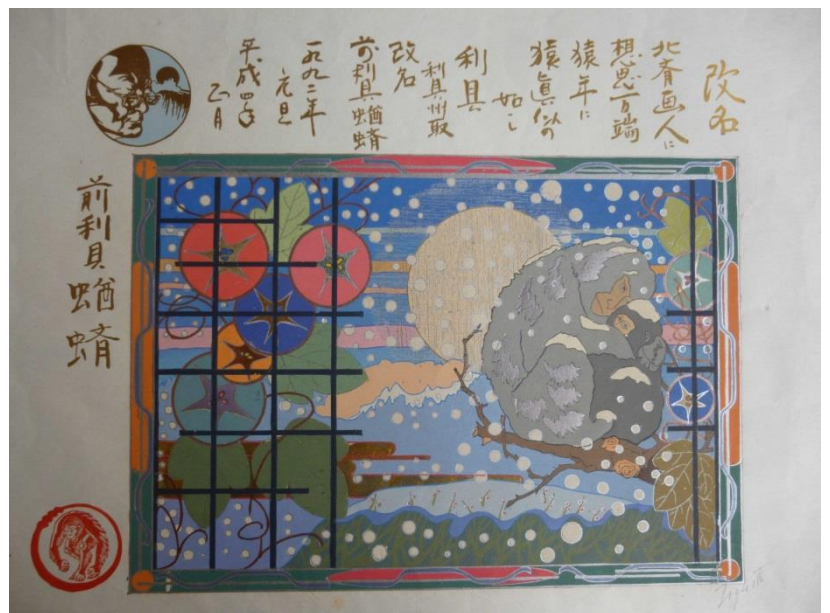 改名
北斎画人に
想思万端
猿年に
猿真似の
如し
利具
利具州取
改名
前利具蝤蛴
一九九二年
元旦
平成四年
正月
前利貝蝤蜻